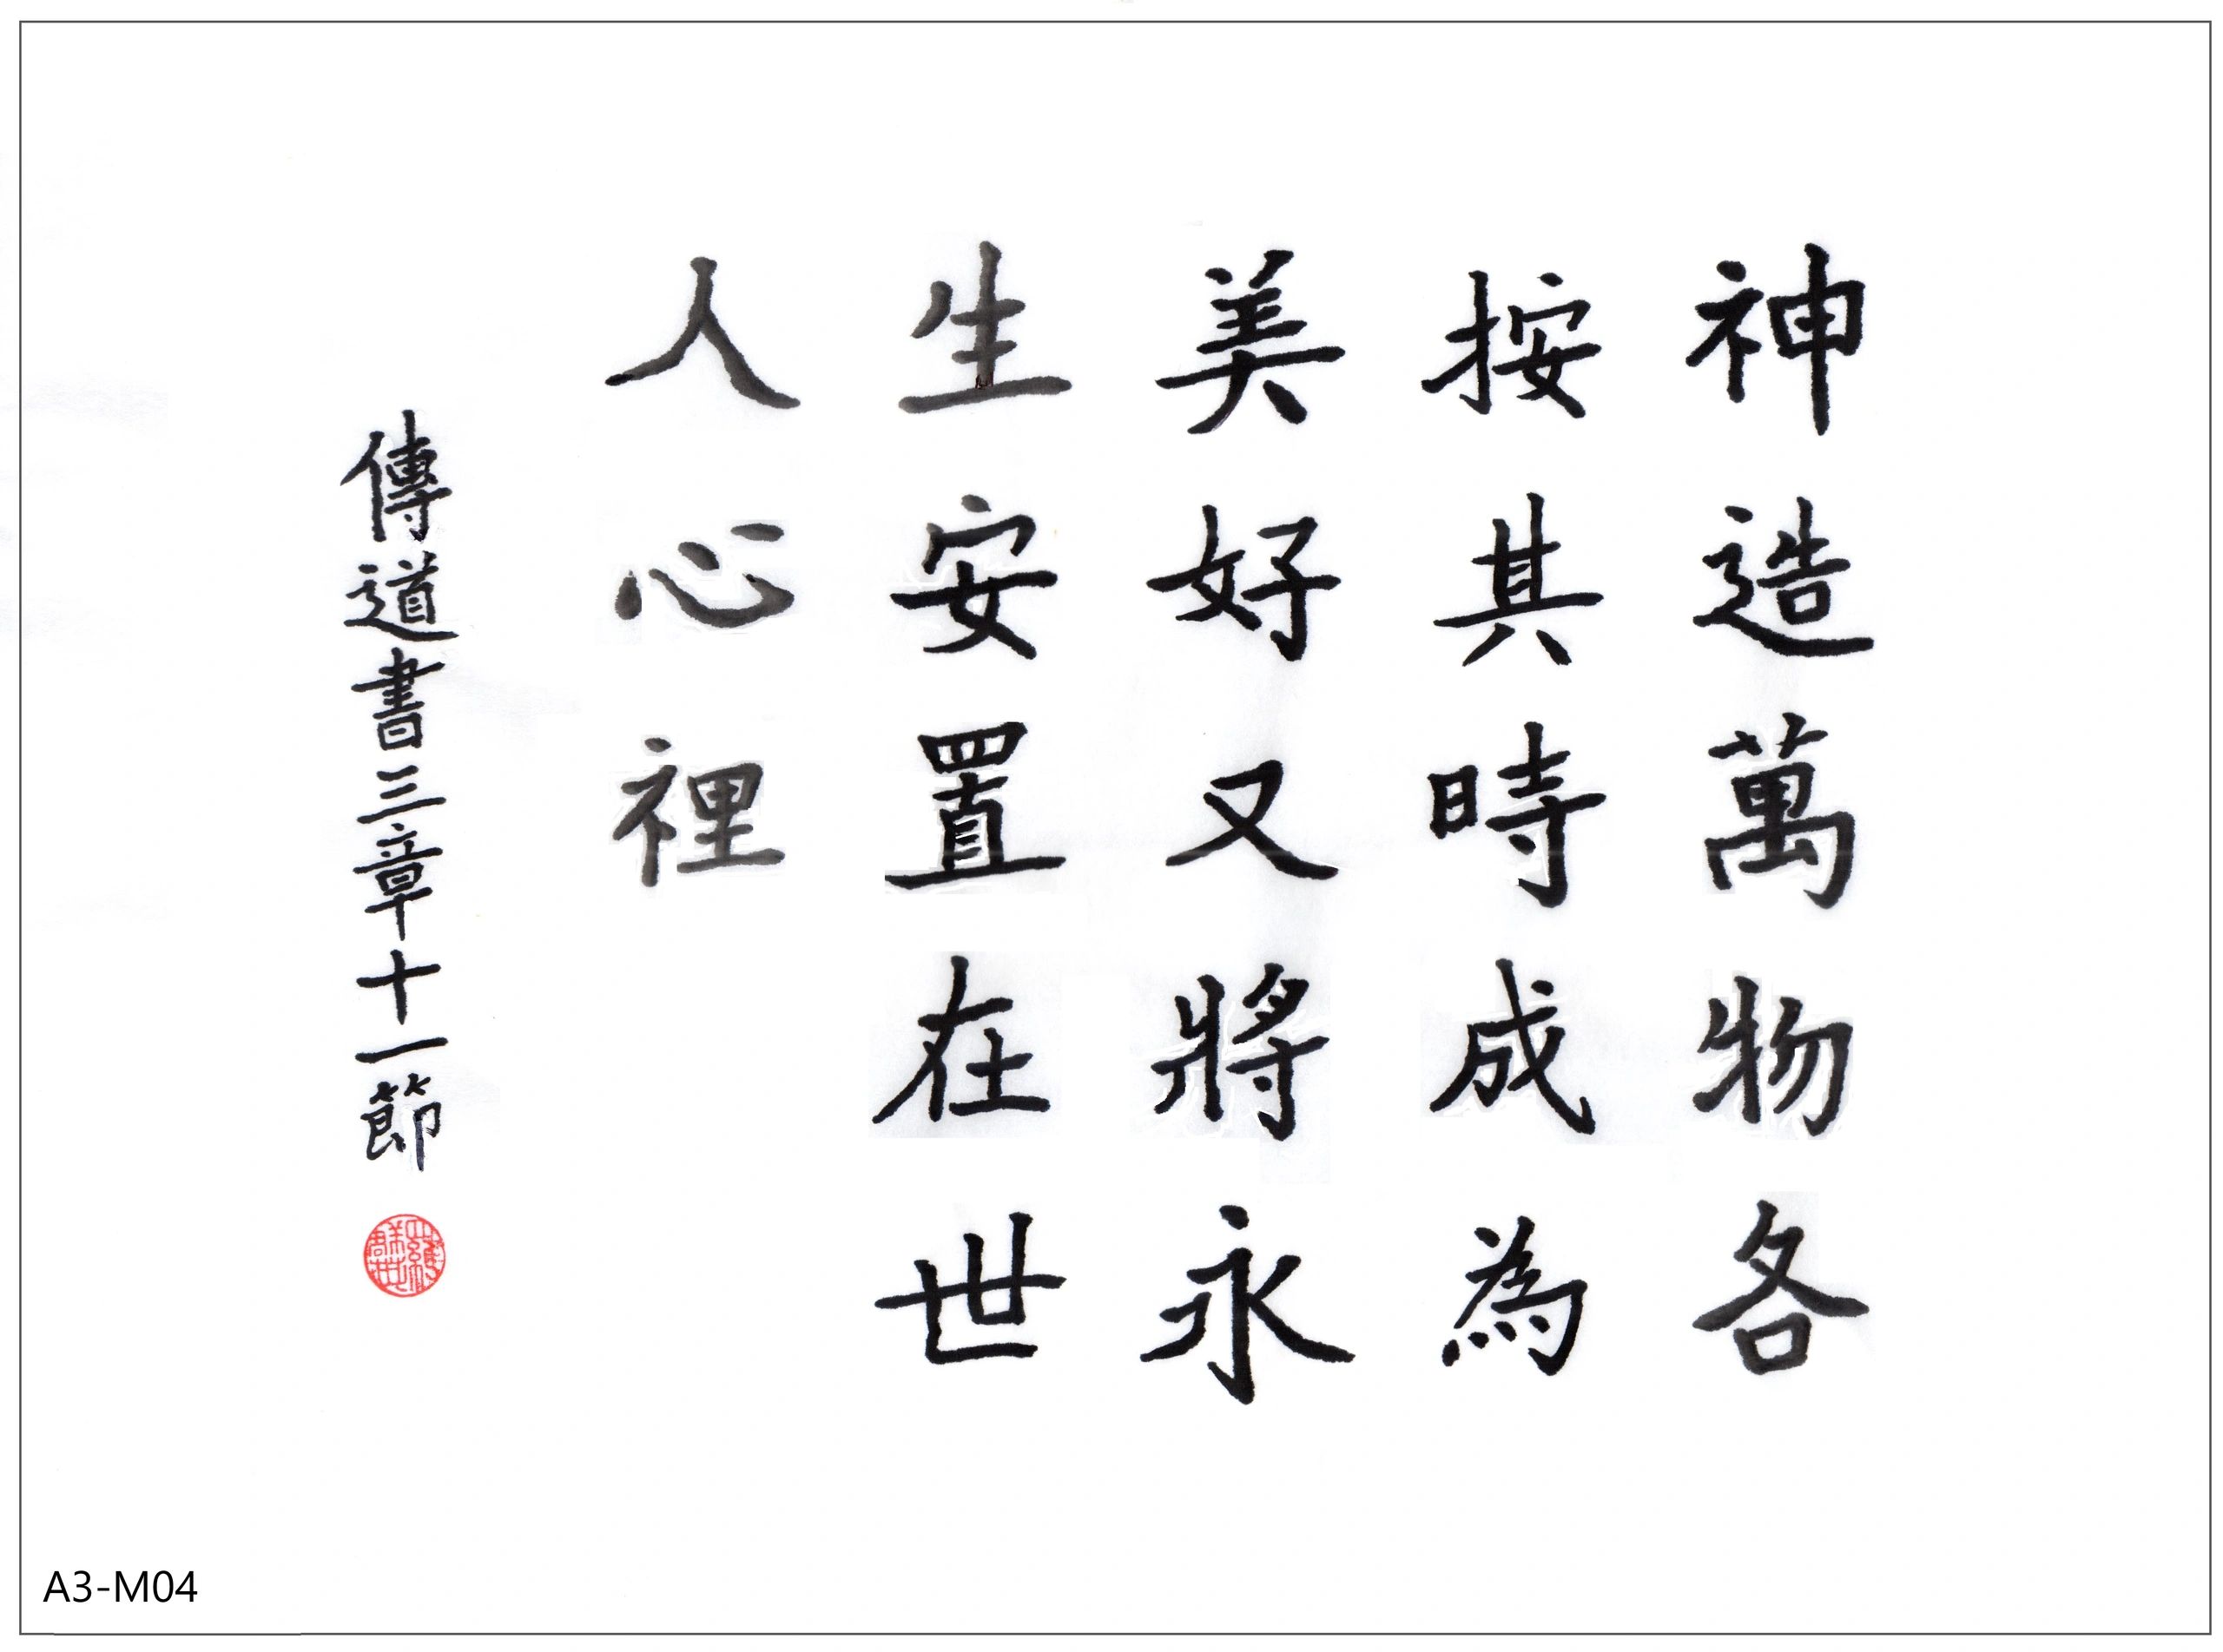 神造萬物各
按其時成為
美好又將永
生安置在世
人心裡
傳道書三章十一節
A3-M04